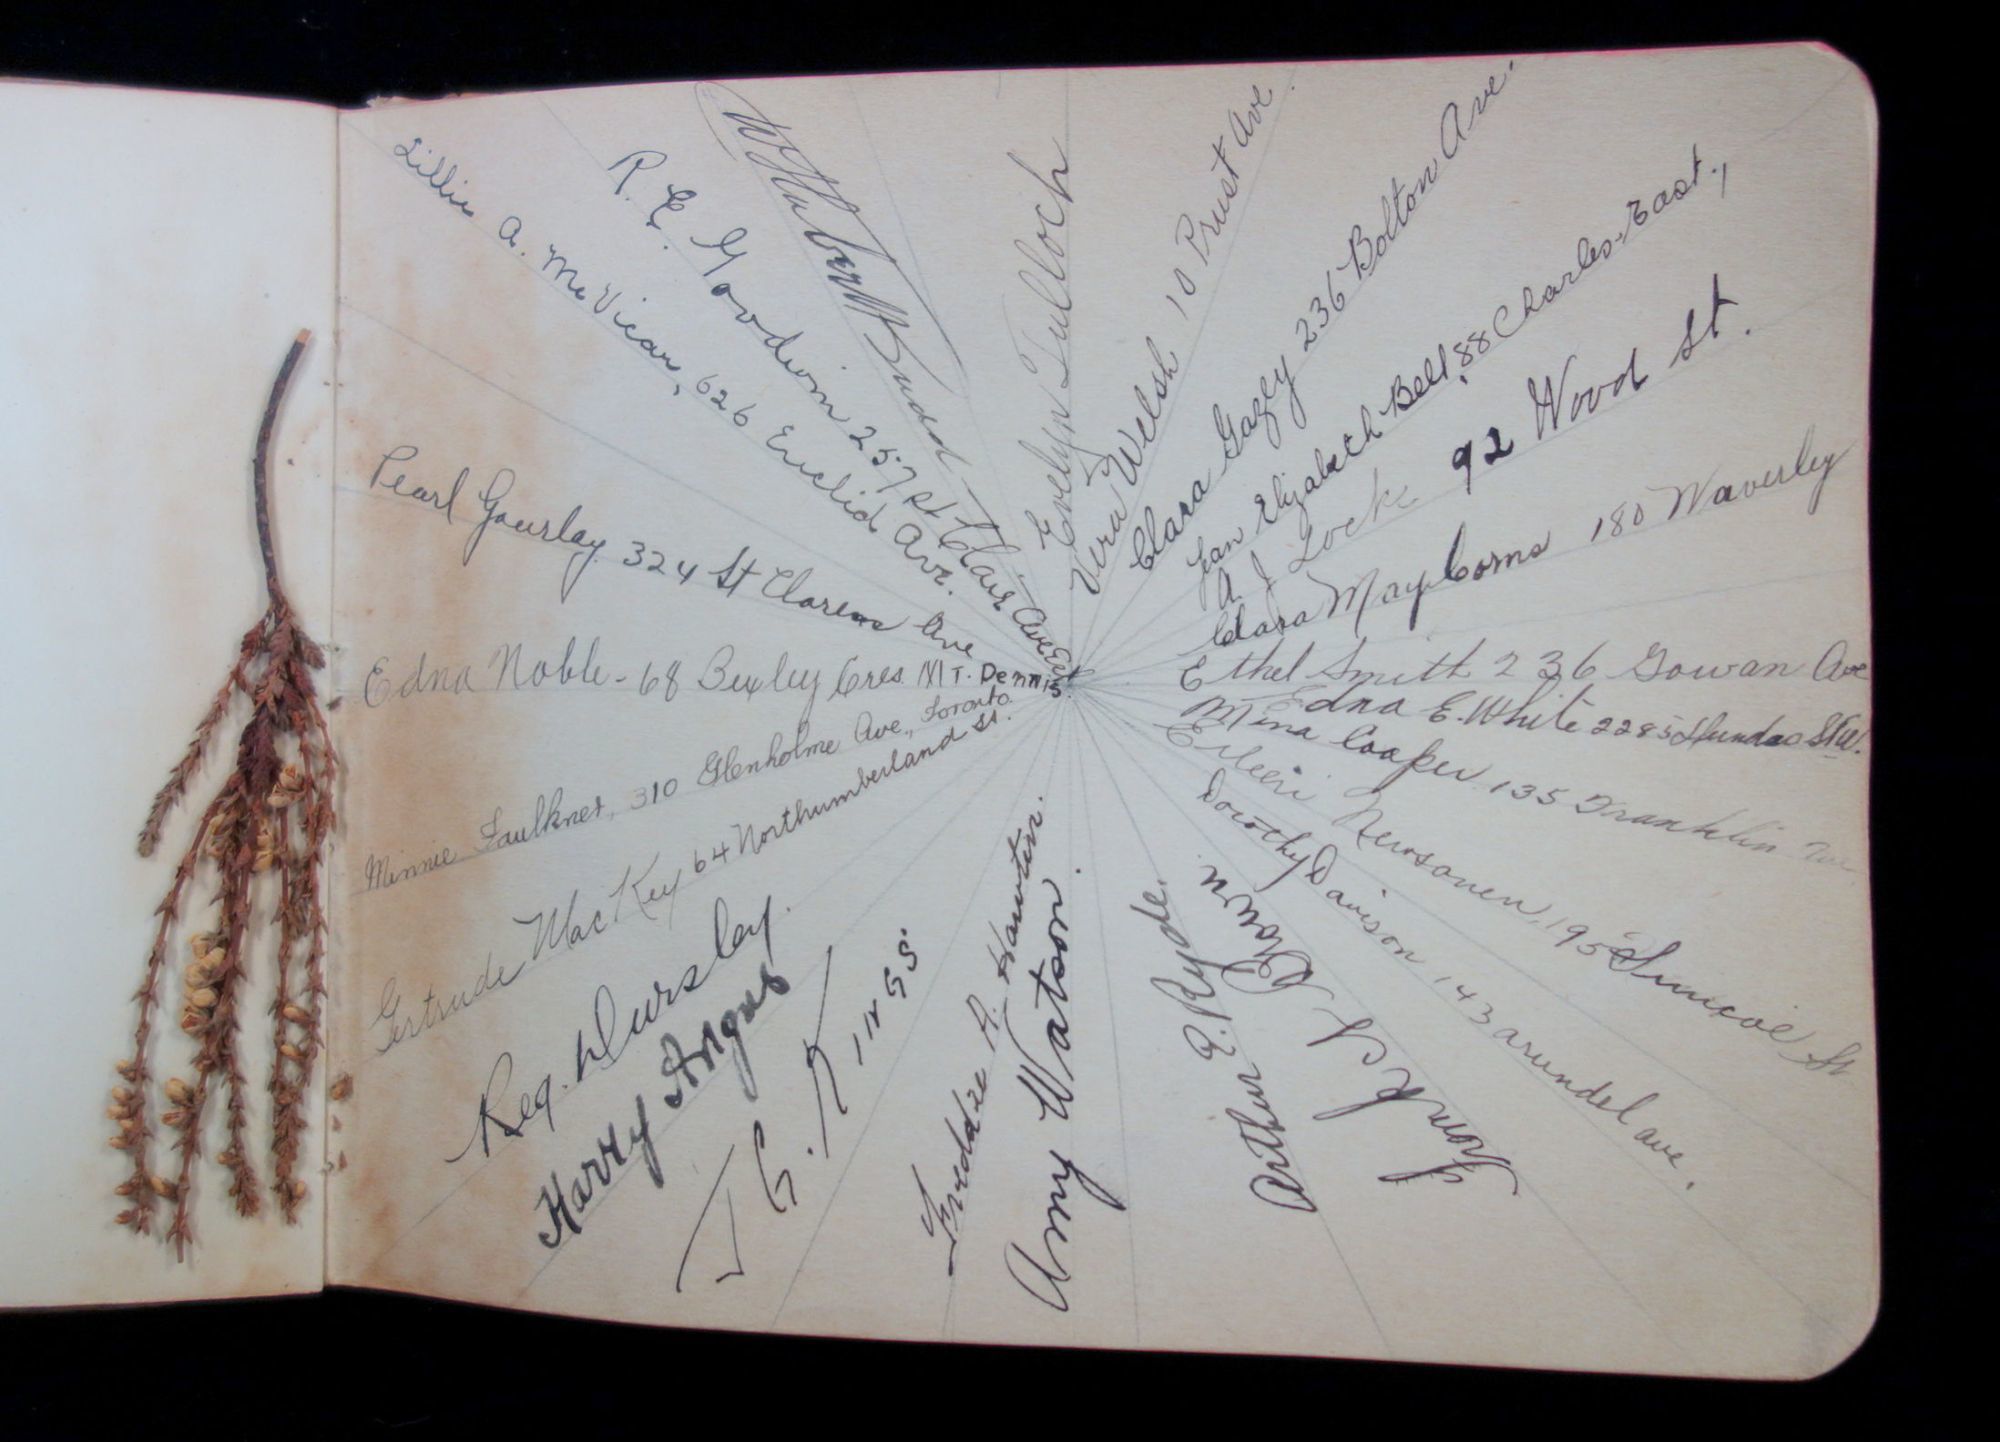 Lillie A. McVicar, 626 Euclid Ave.
R. E. Goodwin 257 St Clair Ave East
Evelyn Tulloch
Vera Welsh 10 Prust Ave.
Clara Gazey 236 Bolton Ave.
Jean Elizabeth Bell, 88 Charles-East.,
A. J. Lock 92 Wood St.
Clara May Corns 180 Waverley
Ethel Smith 236 Gowan Ave
Edna E. White 2285 Dundas St W.
Mina Cooper 135 Franklin
Eileen 195 Simcoe St
Dorothy Davison 143 Arundel ave.
Frank J
Arthur E. Ryde.
Amy Watson.
Freddie A. Hunter.
J G. Kings.
Harry Angus
Reg. Dursley.
Gertrude MacKey 64 Northumberland St.
Minnie Faulkner, 310 Glenholme Ave., Toronto.
Edna Noble - 68 Bexley Cres MT. Dennis.
Pearl Gourlay 324 St Clarens Ave